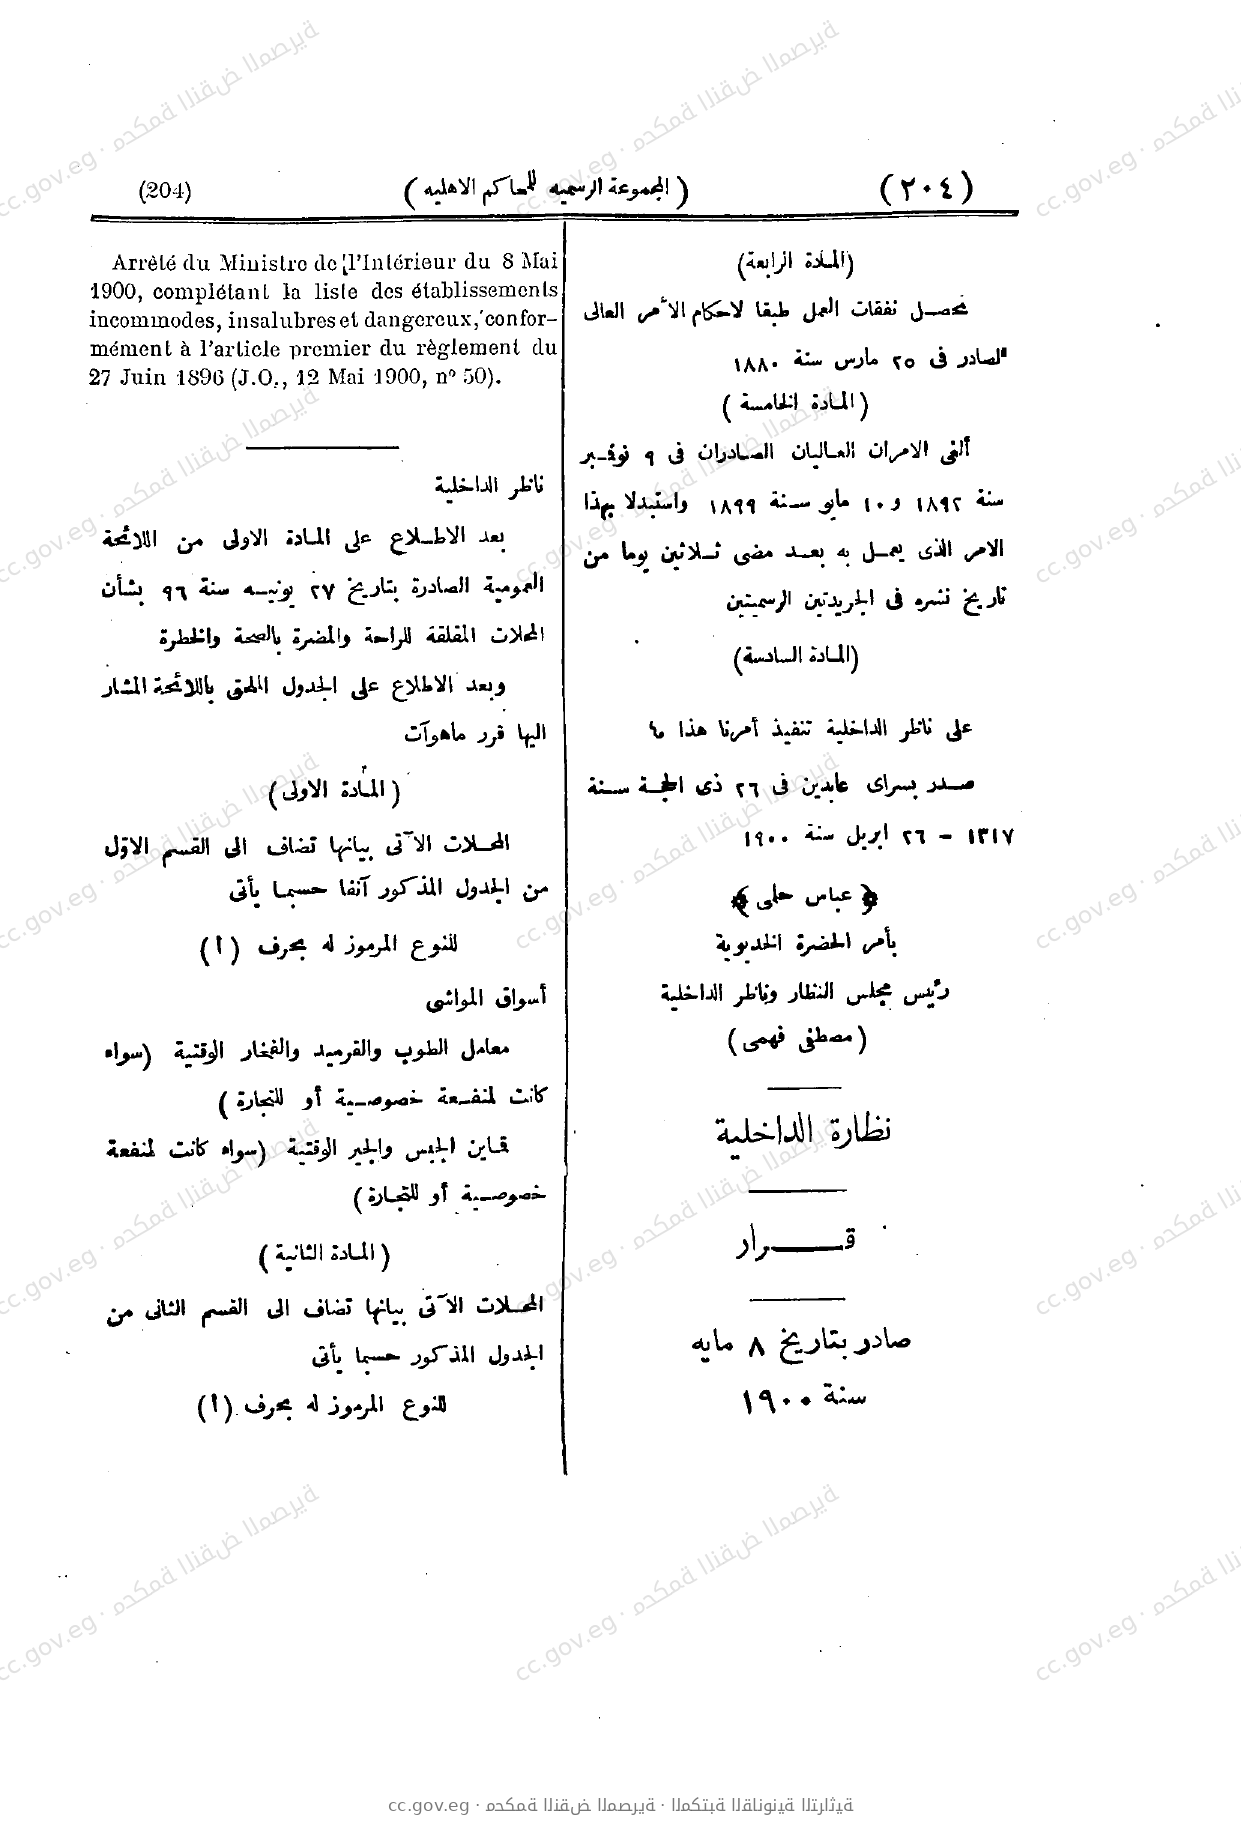 (٢٠٤)
(المجموعة الرسميه للمحاكم الاهليه)
(204)
(المادة الرابعة)
تحصل نفقات العمل طبقا لاحكام الأمر العالى
الصادر فى ٢٥ مارس سنة ١٨٨٠
(المادة الخامسة)
ألغى الامران العاليان الصادران فى ٩ نوفمبر
سنة ١٨٩٢ و ١٠ مايو سنة ١٨٩٩ واستبدلا بهذا
الامر الذى يعمل به بعد مضى ثلاثين يوما من
تاريخ نشره فى الجريدتين الرسميتين
(المادة السادسة)
على ناظر الداخلية تنفيذ أمرنا هذا
صدر بسراى عابدين فى ٢٦ ذى الحجة سنة
١٣١٧ – ٢٦ ابريل سنة ١٩٠٠
﴿ عباس حلمى ﴾
بأمر الحضرة الخديوية
رئيس مجلس النظار وناظر الداخلية
(مصطفى فهمى)
نظارة الداخلية
قرار
صادر بتاريخ ٨ مايه
سنة ١٩٠٠
Arrêté du Ministre de l'Intérieur du 8 Mai
1900, complétant la liste des établissements
incommodes, insalubres et dangereux, confor-
mément à l'article premier du règlement du
27 Juin 1896 (J.O., 12 Mai 1900, nº 50).
ناظر الداخلية
بعد الاطلاع على المادة الاولى من اللائحة
العمومية الصادرة بتاريخ ٢٧ يونيه سنة ٩٦ بشأن
المحلات المقلقة للراحة والمضرة بالصحة والخطرة
وبعد الاطلاع على الجدول الملحق باللائحة المشار
اليها قرر ماهوآت
(المادة الاولى)
المحلات الآتى بيانها تضاف الى القسم الاوّل
من الجدول المذكور آنفا حسبما يأتى
للنوع المرموز له بحرف (أ)
أسواق المواشى
معامل الطوب والقرميد والفخار الوقتية (سواء
كانت لمنفعة خصوصية أو للتجارة)
قماين الجبس والجير الوقتية (سواء كانت لمنفعة
خصوصية أو للتجارة)
(المادة الثانية)
المحلات الآتى بيانها تضاف الى القسم الثانى من
الجدول المذكور حسبما يأتى
للنوع المرموز له بحرف (أ)
cc.gov.eg · محكمة النقض المصرية · المكتبة القانونية التراثية